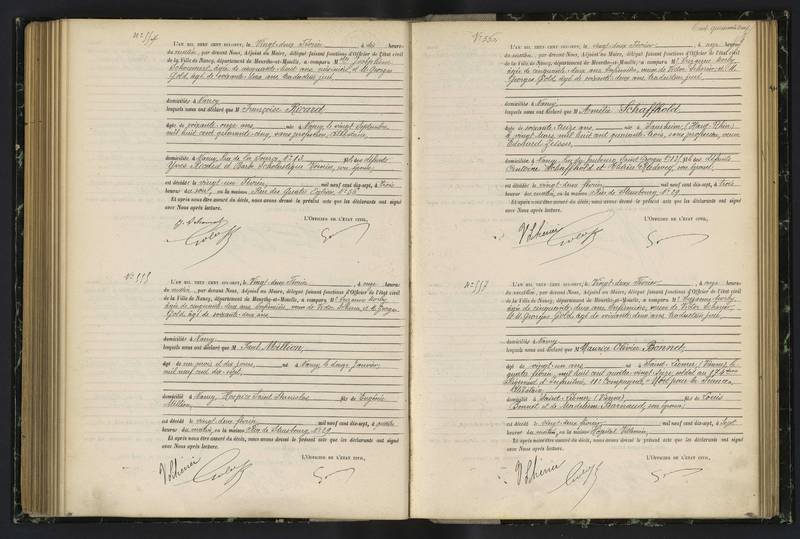 N° 554
L'AN MIL NEUF CENT DIX-SEPT, le Vingt-deux Février, à dix heures
du matin, par devant Nous, Adjoint au Maire, délégué faisant fonctions d'Officier de l'état civil
de la Ville de Nancy, département de Meurthe-et-Moselle, a comparu M Joséphine
âgée de cinquante-huit ans et M. Georges
Gold, âgé de soixante-deux ans traducteur juré
domiciliés à Nancy
lesquels nous ont déclaré que M Françoise Ricard
âgée de soixante-onze ans née à Nancy le vingt Septembre
mil huit cent quarante-cinq, sans profession, célibataire
domiciliée à Nancy, Rue de la Source, N° 13, fille des défunts
Yves Ricard et Barbe Scholastique son épouse,
est décédée le vingt-un février mil neuf cent dix-sept, à trois
heures du soir, en la maison Rue des Quatre Eglises, N° 56
Et après nous être assuré du décès, nous avons dressé le présent acte que les déclarants ont signé
avec Nous après lecture.
L'OFFICIER DE L'ÉTAT CIVIL,
N° 555
L'AN MIL NEUF CENT DIX-SEPT, le Vingt-deux Février, à onze heures
du matin, par devant Nous, Adjoint au Maire, délégué faisant fonctions d'Officier de l'état civil
de la Ville de Nancy, département de Meurthe-et-Moselle, a comparu M Suzanne
âgée de cinquante-deux ans infirmière, veuve de Victor et M. Georges
Gold âgé de soixante-deux ans
domiciliés à Nancy
lesquels nous ont déclaré que M Paul Million,
âgé de un mois et dix jours, né à Nancy le douze Janvier
mil neuf cent dix-sept
domicilié à Nancy, Hospice Saint Stanislas fils de Eugénie
Million,
est décédé le vingt-deux février mil neuf cent dix-sept, à quatre
heures du matin, en la maison Rue de Strasbourg N° 29
Et après nous être assuré du décès, nous avons dressé le présent acte que les déclarants ont signé
avec Nous après lecture.
L'OFFICIER DE L'ÉTAT CIVIL,
N° 556
L'AN MIL NEUF CENT DIX-SEPT, le vingt-deux Février, à onze heures
du matin, par devant Nous, Adjoint au Maire, délégué faisant fonctions d'Officier de l'état civil
de la Ville de Nancy, département de Meurthe-et-Moselle, a comparu M Suzanne
âgée de cinquante-deux ans infirmière, veuve de Victor et M.
Georges Gold, âgé de soixante-deux ans traducteur juré,
domiciliés à Nancy
lesquels nous ont déclaré que M Amélie Schaffhold
âgée de soixante-treize ans, née à (Haut-Rhin)
le vingt Mars mil huit cent quarante-trois, sans profession, veuve
Edouard
domiciliée à Nancy, Rue du faubourg Saint Georges fille des défunts
Antoine Schaffhold et son épouse,
est décédée le vingt-deux février mil neuf cent dix-sept, à trois
heures du matin, en la maison Rue de Strasbourg N° 29
Et après nous être assuré du décès, nous avons dressé le présent acte que les déclarants ont signé
avec Nous après lecture.
L'OFFICIER DE L'ÉTAT CIVIL,
N° 557
L'AN MIL NEUF CENT DIX-SEPT, le Vingt-deux Février, à onze heures
du matin, par devant Nous, Adjoint au Maire, délégué faisant fonctions d'Officier de l'état civil
de la Ville de Nancy, département de Meurthe-et-Moselle, a comparu M Suzanne
âgée de cinquante-deux ans infirmière, veuve de Victor
et M. Georges Gold âgé de soixante-deux ans traducteur juré,
domiciliés à Nancy
lesquels nous ont déclaré que M Maurice Olivier Bonnet,
âgé de vingt-un ans né à Saint (Vienne) le
quatre février, mil huit cent quatre-vingt-seize, soldat au
Régiment d'Infanterie, 11e Compagnie, "Mort pour la France",
Célibataire
domicilié à Saint (Vienne) fils de Louis
Bonnet et de Madeleine son épouse,
est décédé le vingt-deux février mil neuf cent dix-sept, à sept
heures du matin, en la maison Hôpital Villemin
Et après nous être assuré du décès, nous avons dressé le présent acte que les déclarants ont signé
avec Nous après lecture.
L'OFFICIER DE L'ÉTAT CIVIL,